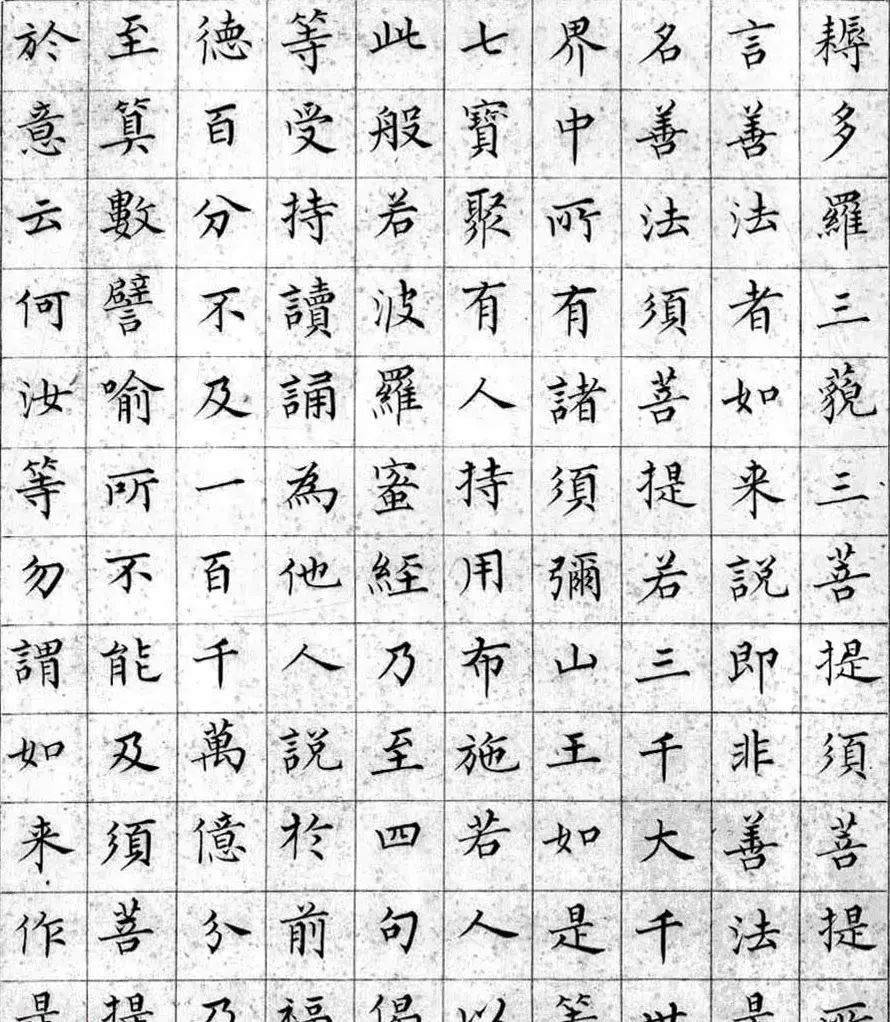 耨多羅三藐三菩提須菩提所
言善法者如来說即非善法是
名善法須菩提若三千大千世
界中所有諸須彌山王如是等
七寶聚有人持用布施若人以
此般若波羅蜜經乃至四句偈
等受持讀誦為他人說於前福
德百分不及一百千萬億分乃
至算數譬喻所不能及須菩提
於意云何汝等勿謂如来作是